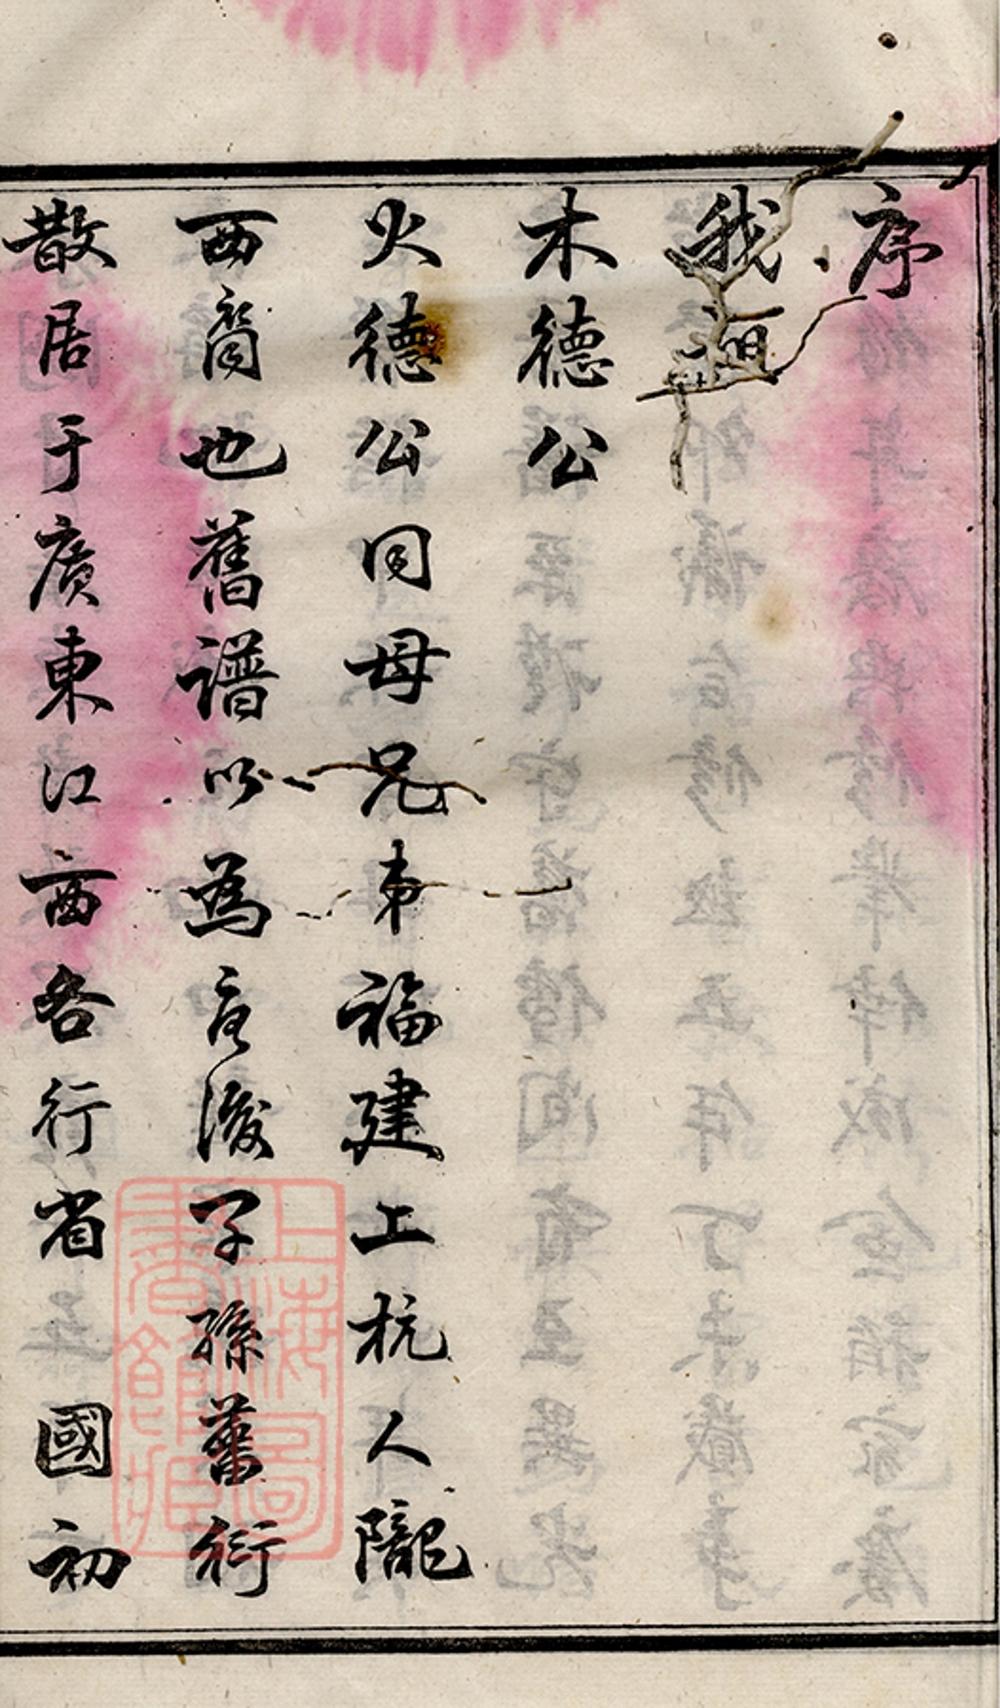 序
我祖
木德公
火德公同母兄弟福建上杭人隴
西裔也舊譜以為言後子孫蕃衍
散居于廣東江西各行省 國初
上海圖書館藏